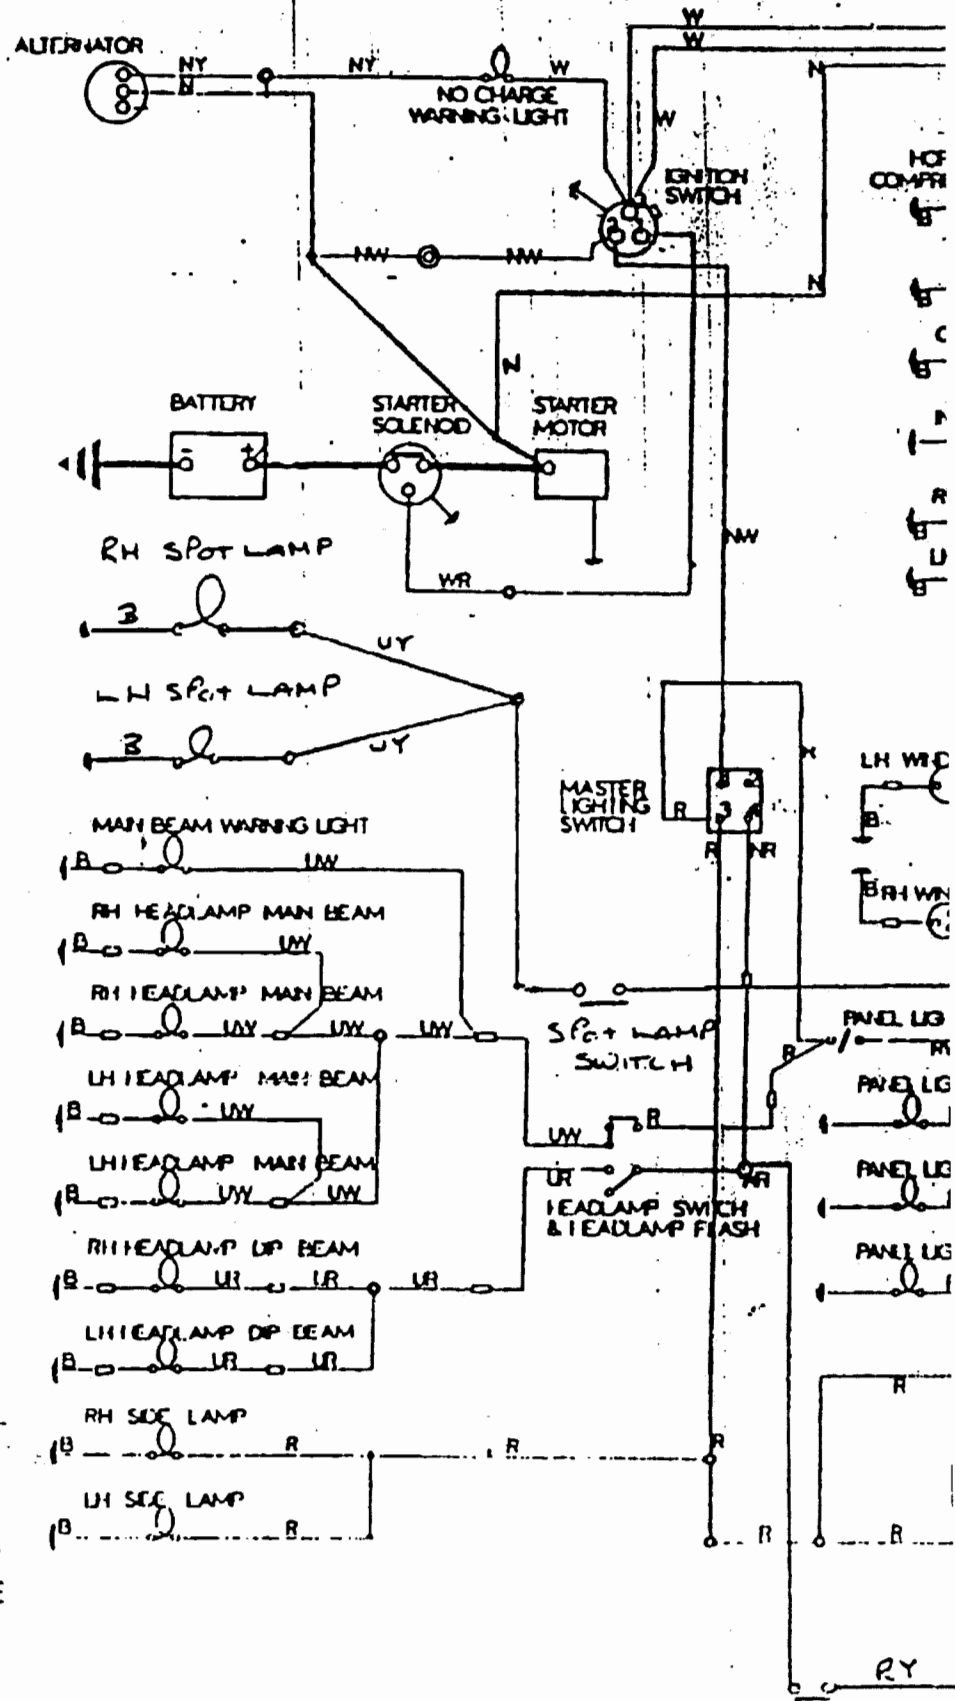 W
W
ALTERNATOR
NY
NY
W
N
N
NO CHARGE
WARNING LIGHT
W
IGNITION
SWITCH
HOR
COMPRE
B
2
1
NW
NW
N
B
N
C
B
BATTERY
STARTER
SOLENOID
STARTER
MOTOR
-
+
R
B
NW
U
B
RH SPOT LAMP
WR
B
UY
LH SPOT LAMP
B
UY
MASTER
LIGHTING
SWITCH
1 2
3 4
R
R
NR
LH WIND
B
B
RH WIN
MAIN BEAM WARNING LIGHT
B
UW
RH HEADLAMP MAIN BEAM
B
UW
RH HEADLAMP MAIN BEAM
B
UW
UW
UW
SPOT LAMP
SWITCH
PANEL LIG
R
LH HEADLAMP MAIN BEAM
B
UW
R
UW
PANEL LIG
LH HEADLAMP MAIN BEAM
B
UW
UW
UR
NR
HEADLAMP SWITCH
& HEADLAMP FLASH
PANEL LIG
RH HEADLAMP DIP BEAM
B
UR
UR
UR
PANEL LIG
LH HEADLAMP DIP BEAM
B
UR
UR
R
RH SIDE LAMP
B
R
R
R
LH SIDE LAMP
B
R
R
R
RY